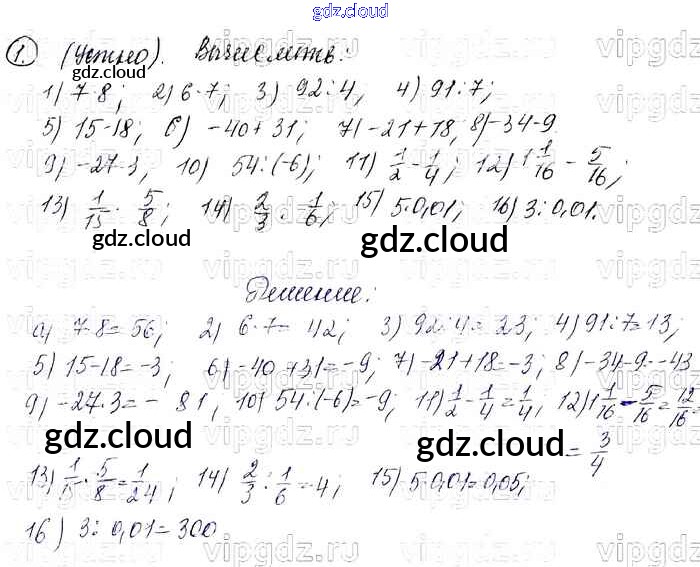 gdz.cloud
1. (Устно). Вычислить:
1) 7·8; 2) 6·7; 3) 92:4, 4) 91:7;
5) 15-18; 6) -40+31; 7) -21+18, 8) -34-9.
9) -27·3, 10) 54:(-6); 11) 1/2 - 1/4; 12) 1 1/16 - 5/16;
13) 1/15 · 5/8; 14) 2/3 : 1/6; 15) 5·0,01; 16) 3:0,01.
gdz.cloud gdz.cloud
Решение:
1) 7·8= 56; 2) 6·7= 42; 3) 92:4= 23; 4) 91:7=13;
5) 15-18=-3; 6) -40+31=-9; 7) -21+18=-3; 8) -34-9=-43
9) -27·3=-81, 10) 54·(-6)=-9; 11) 1/2 - 1/4 = 1/4, 12) 1 1/16 - 5/16 = 12/16
gdz.cloud gdz.cloud = 3/4
13) 1/15 · 5/8 = 1/24; 14) 2/3 : 1/6 = 4; 15) 5·0,01=0,05;
16) 3:0,01=300